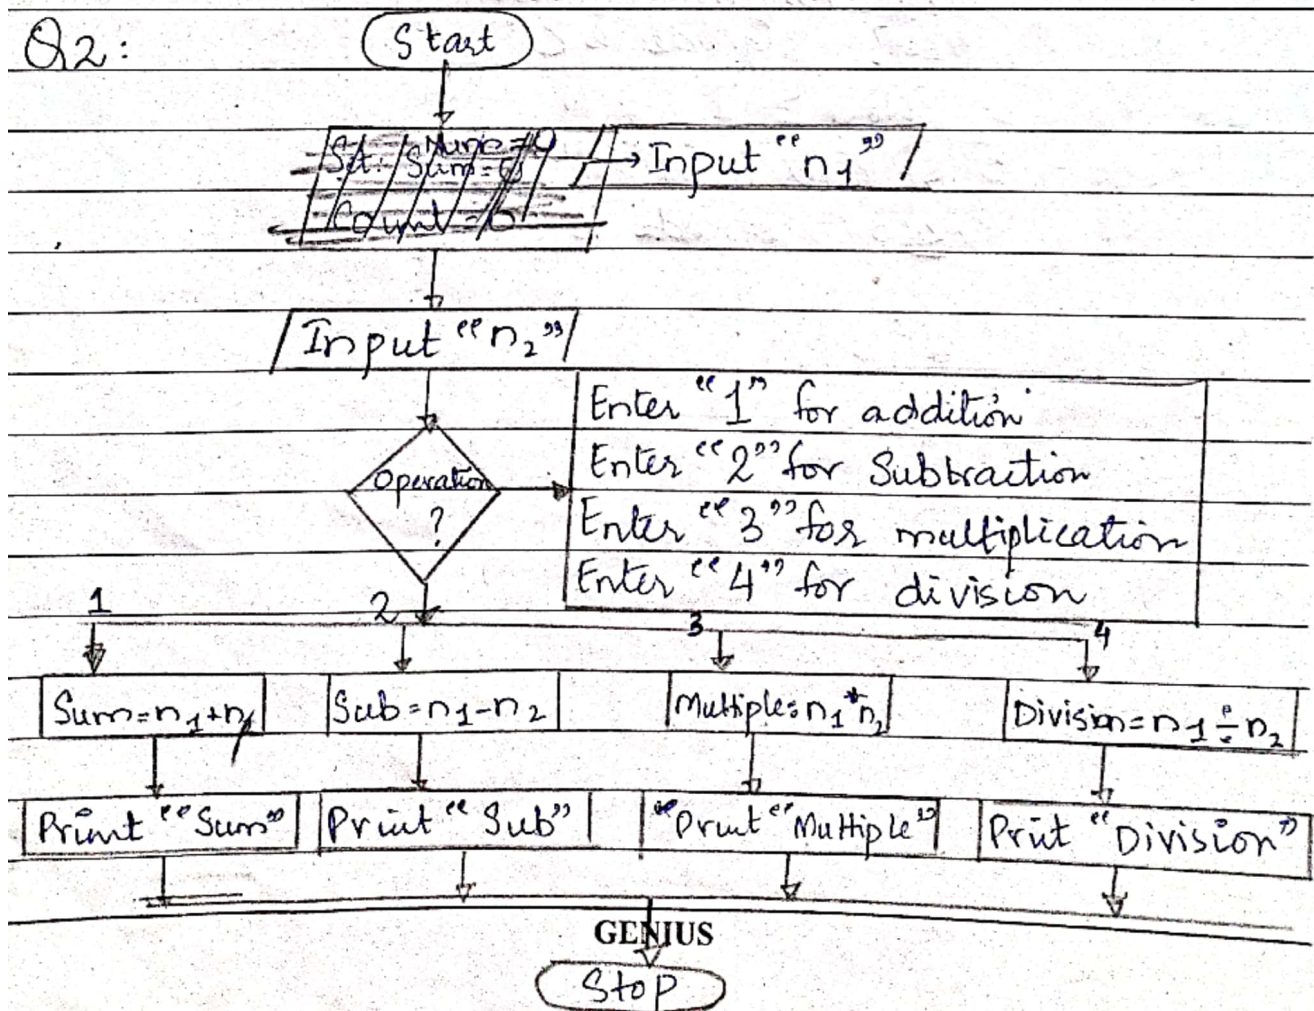 Q2:
Start
Set: Num=0
Sum=0
Count=0
Input "n1"
Input "n2"
Operation
?
Enter "1" for addition
Enter "2" for Subtraction
Enter "3" for multiplication
Enter "4" for division
1 2 3 4
Sum=n1+n1 Sub=n1-n2 Multiple=n1*n2 Division=n1÷n2
Print "Sum" Print "Sub" "Print "Multiple" Print "Division"
GENIUS
Stop